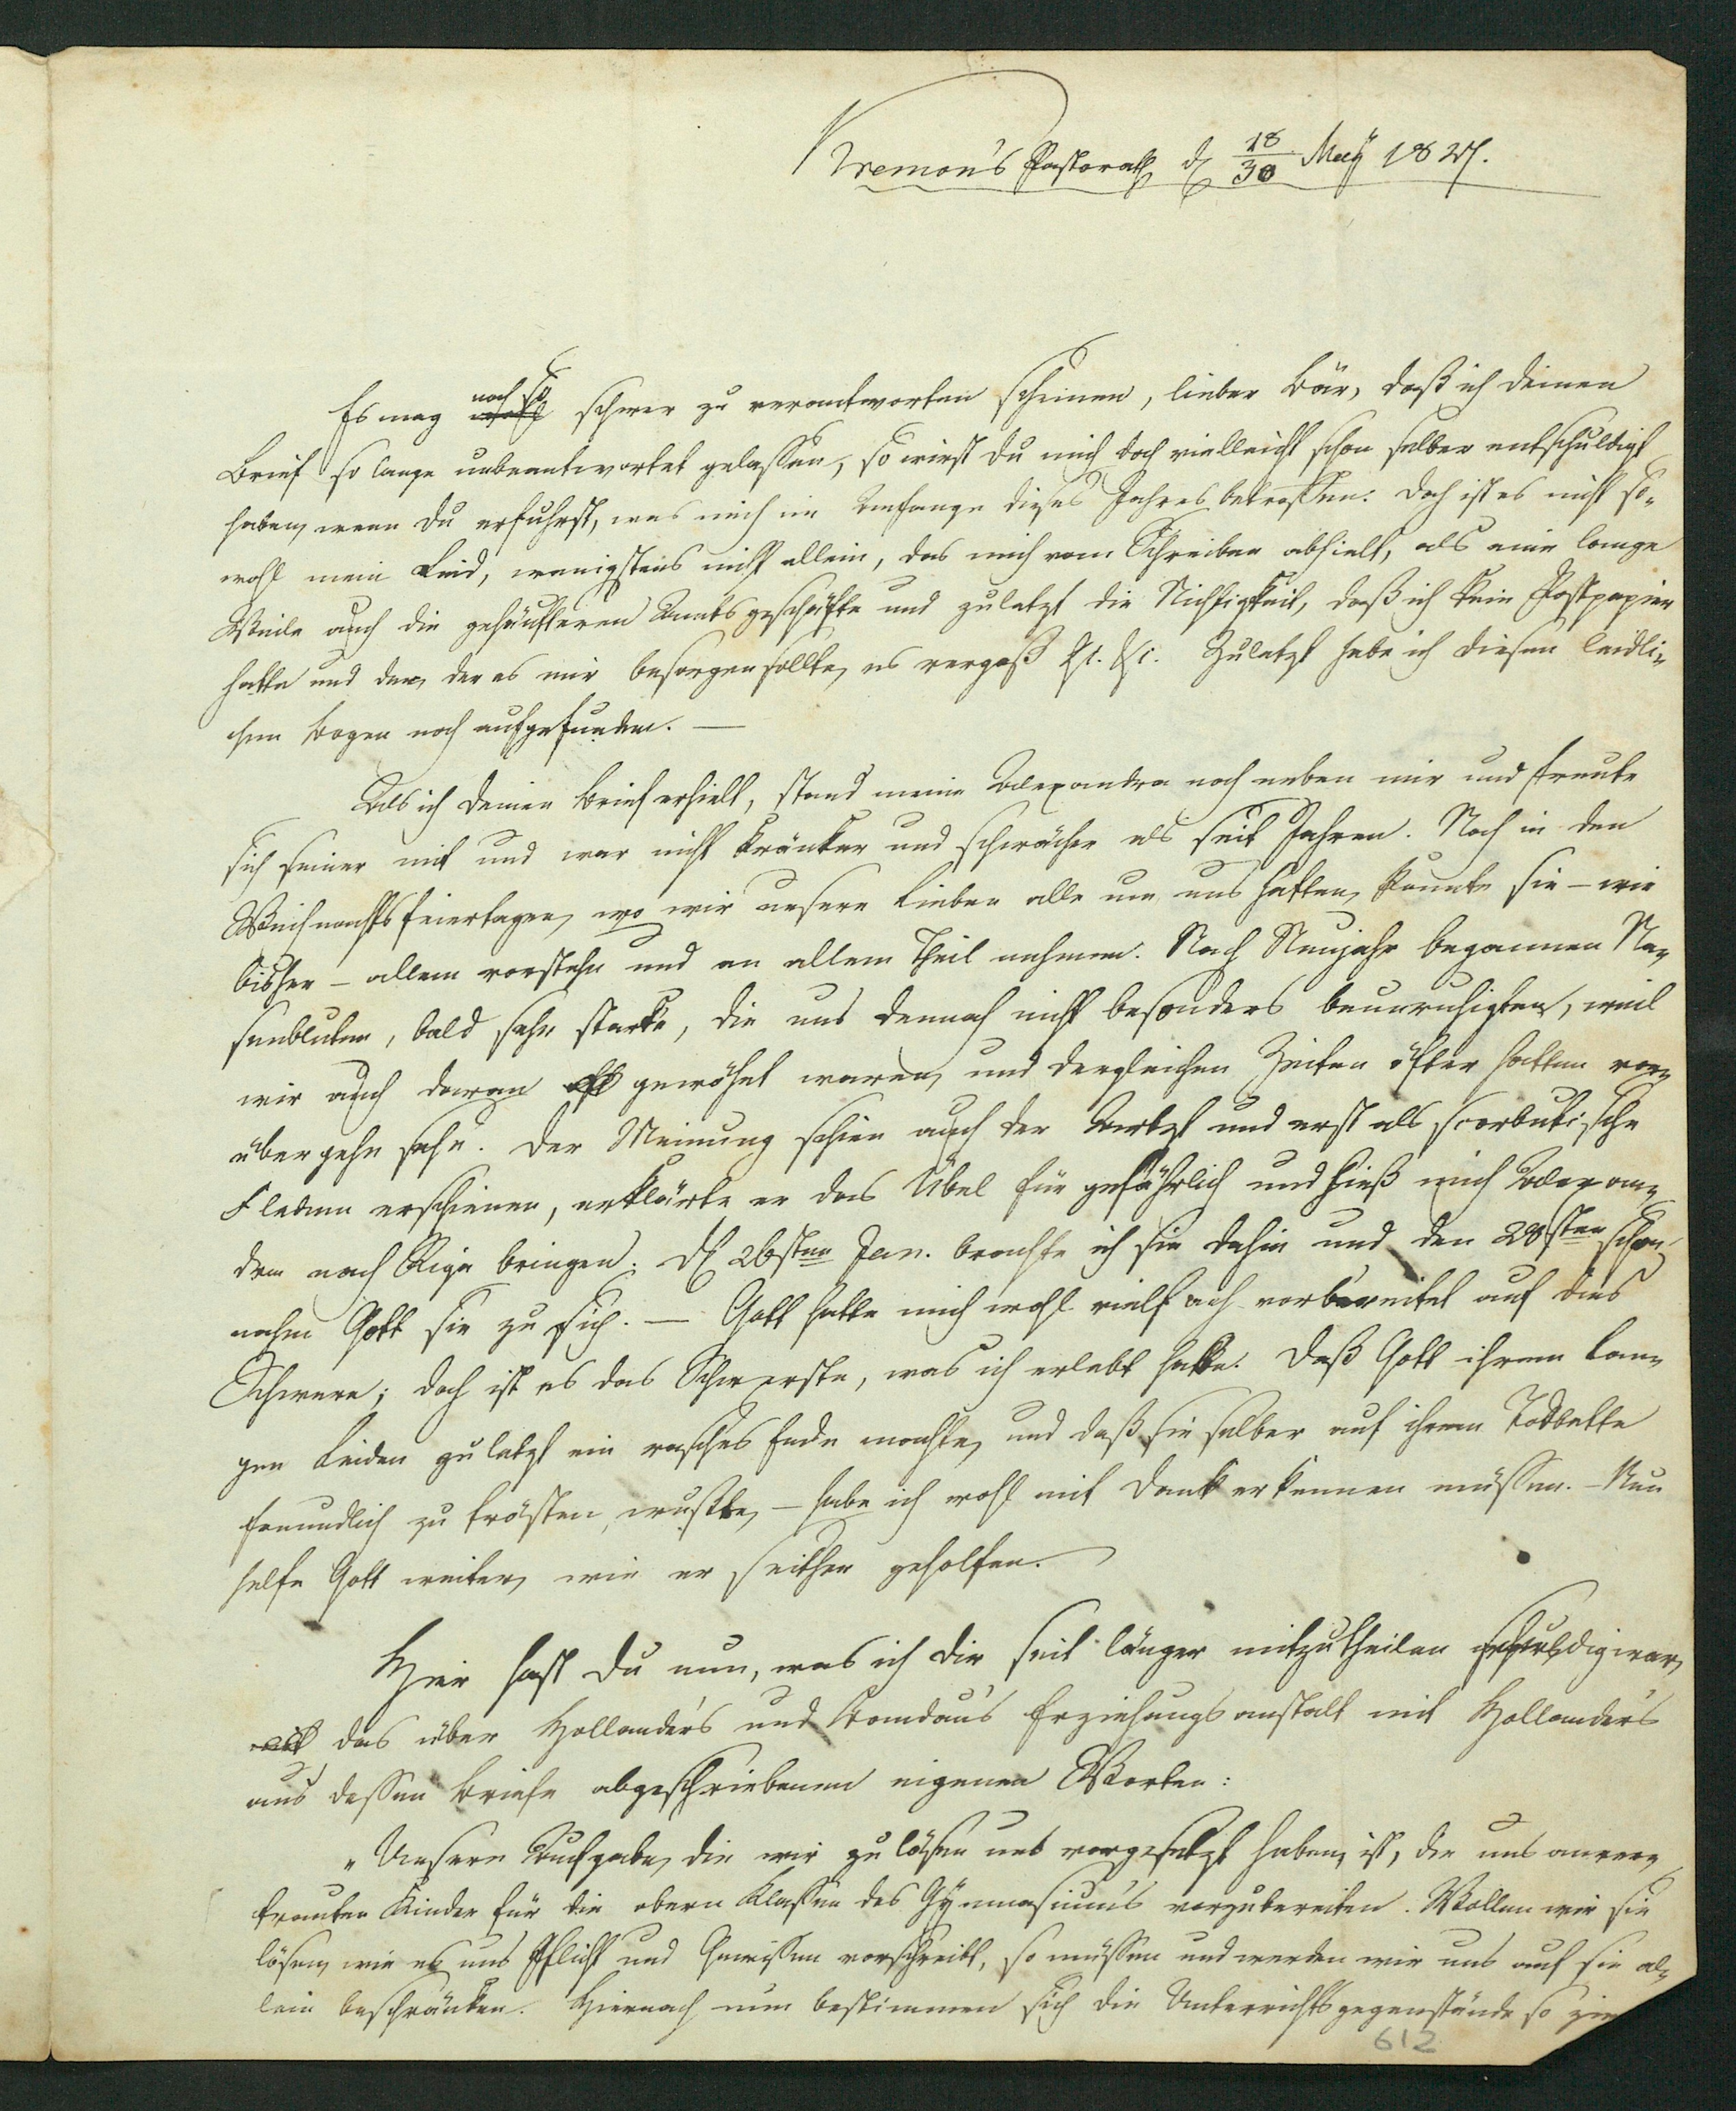 Kremon's Pastorath d 18/30 May 1827.
Es mag wohl noch so schwer zu verantworten scheinen, lieber Bär, daß ich Deinen
Brief so lange unbeantwortet gelassen, so wirst Du mich doch vielleicht schon selber entschuldigt
haben, wenn Du erfuhrst, was mich im Anfange dieses Jahres betroffen. Doch ist es nicht so-
wohl mein Leid, wenigstens nicht allein, das mich vom Schreiben abhielt, als eine lange
Weile auch die gehäufteren Amtsgeschäfte und zuletzt die Nichtigkeit, daß ich kein Postpapier
hatte und der, der es mir besorgen sollte, es vergaß &c. &c. Zuletzt habe ich diesen leidli-
chen Bogen noch aufgefunden. —
Als ich Deinen Brief erhielt, stand meine Alexandra noch neben mir und freute
sich seiner mit und war nicht kränker und schwächer als seit Jahren. Noch in den
Weihnachtsfeiertagen, wo wir unsere Lieben alle um uns hatten, konnte sie – wie
bisher – allem vorstehn und an allem Theil nehmen. Nach Neujahr begannen Na-
senbluten, bald sehr starke, die uns dennoch nicht besonders beunruhigten, weil
wir auch daran oft gewöhnt waren, und dergleichen Zeiten öfter hatten vor-
übergehn sehn. Der Meinung schien auch der Artzt und erst als scorbutische
Flecken erschienen, erklärte er das Übel für gefährlich und hieß mich Alexan-
dra nach Riga bringen. d 26sten Jan. brachte ich sie dahin und den 28sten schon
nahm Gott sie zu sich. — Gott hatte mich wohl vielfach vorbereitet auf dies
Schwere; doch ist es das Schwerste, was ich erlebt habe. Daß Gott ihrem lan-
gen Leiden zuletzt ein rasches Ende machte, und daß sie selber auf ihrem Todbette
freundlich zu trösten wußte, – habe ich wohl mit Dank erkennen müssen. – Nun
helfe Gott weiter, wie er seither geholfen.
Hier hast Du nun, was ich Dir seit länger mitzutheilen schuldig war,
das über Hollander's und Bornhaus Erziehungsanstalt mit Hollander's
aus dessen Briefe abgeschriebenen eigenen Worten:
„Unsere Aufgabe, die wir zu lösen uns vorgesetzt haben, ist, die uns anver-
trauten Kinder für die obern Klassen des Gymnasiums vorzubereiten. Wollen wir sie
lösen, wie es uns Pflicht und Gewissen vorschreibt, so müssen und werden wir uns auf sie al-
lein beschränken. Hiernach nun bestimmen sich die Unterrichtsgegenstände so
612